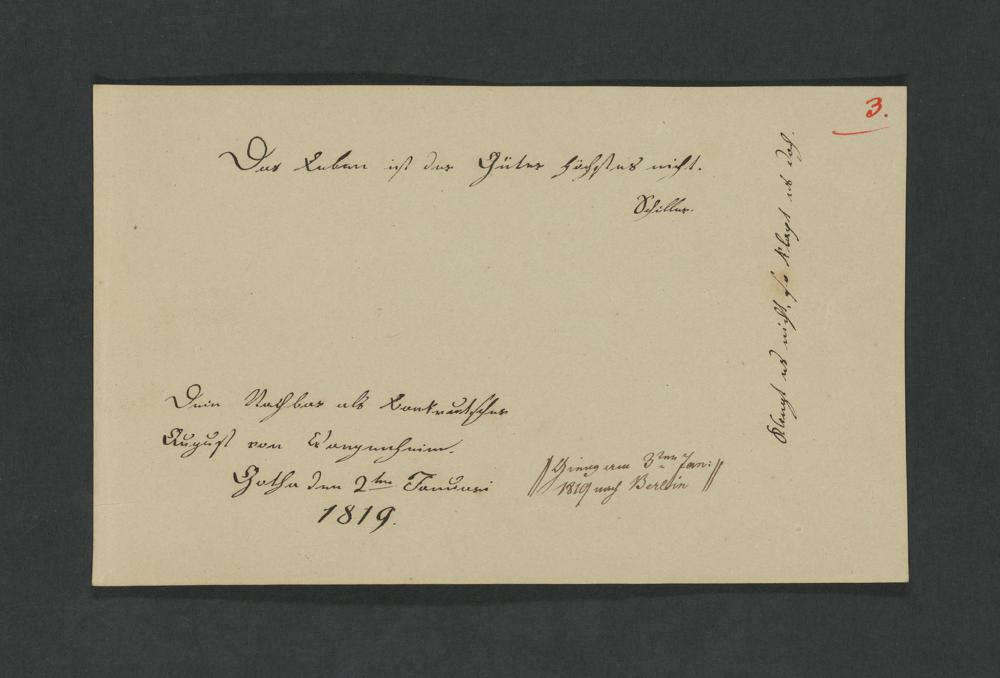 3.
Das Leben ist der Güter höchstes nicht.
Schiller.
Klingt es nicht, so klapt es doch.
Dein Nachbar als
August von Wangenheim.
Gotha den 2ten Januari
1819.
// Gieng am 3ten Jan: //
1819 nach Berlin